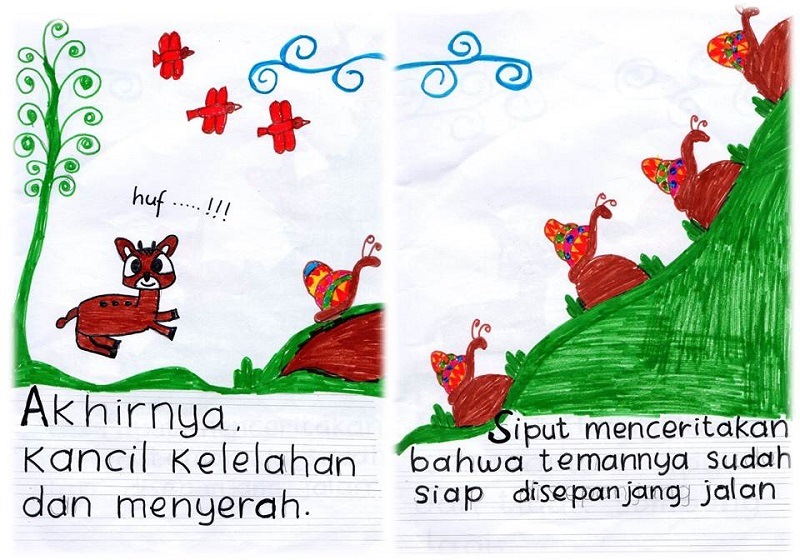 huf .....!!!
Akhirnya,
Kancil Kelelahan
dan menyerah.
Siput menceritakan
bahwa temannya sudah
siap disepanjang jalan